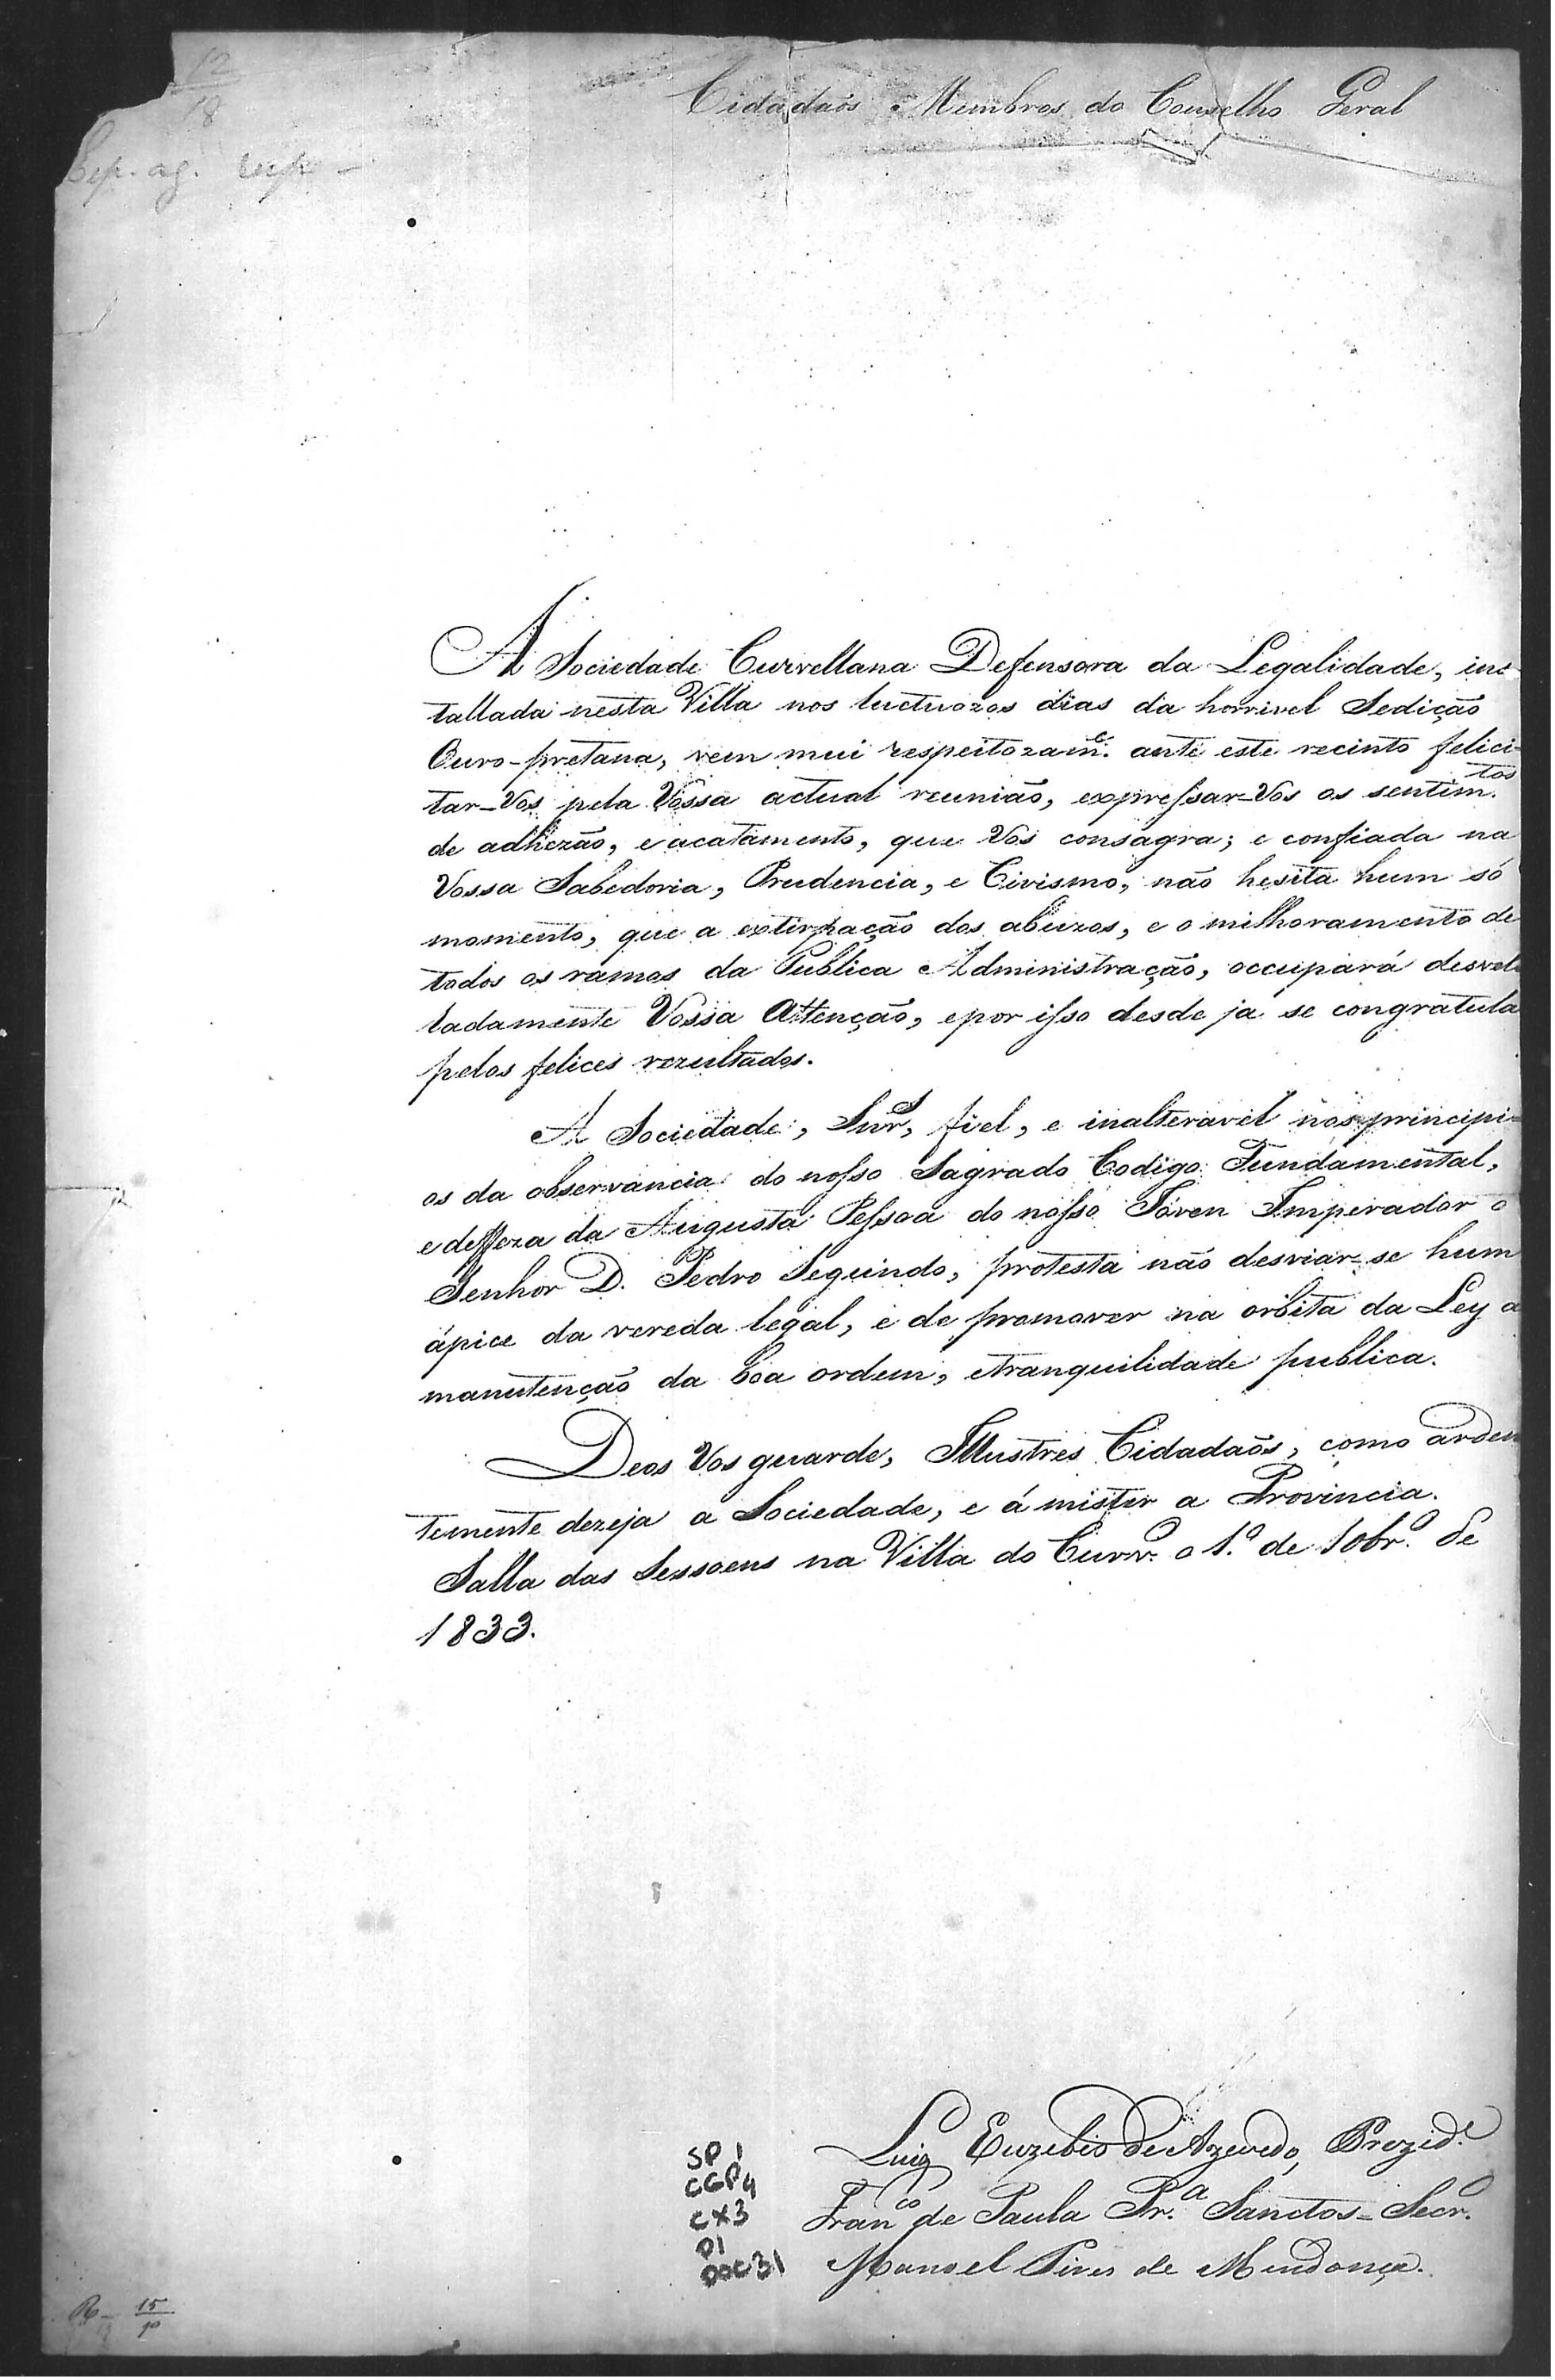 12
18
Cidadaõs Membros do Conselho Geral
A Sociedade Curvellana Defensora da Legalidade, ins-
tallada nesta Villa nos luctuozos dias da horrivel Sedição
Ouro-pretana, vem mui respeitozam.e ante este recinto felici-
tar-Vos pela Vossa actual reunião, expressar-Vos os sentim.tos
de adhezão, e acatamento, que Vos consagra; e confiada na
Vossa Sabedoria, Prudencia, e Civismo, não hesita hum só
momento, que a extirpação dos abuzos, e o milhoramento de
todos os ramos da Publica Administração, occupará desvel
ladamente Vossa Attenção, e por isso desde ja se congratula
pelos felices rezultados.
A Sociedade, Snr.s, fiel, e inalteravel nos principi-
os da observancia do nosso Sagrado Codigo Fundamental,
e deffeza da Augusta Pessoa do nosso Jóven Imperador o
Senhor D. Pedro Segundo, protesta não desviar-se hum
ápice da vereda legal, e de promover na orbita da Ley a
manutenção da boa ordem, e tranquilidade publica.
Deos Vos guarde, Illustres Cidadaõs, como arden
temente dezeja a Sociedade, e á mister a Provincia.
Salla das Sessoens na Villa do Curv.o o 1.o de 10br.o de
1833.
Luiz Euzebio de Azevedo, Prezid.e
Fran.co de Paula Pr.a Sanctos = Secr.o
Manoel Pires de Mendonça.
SP 1
CGP4
CX3
D1
DOC31
15
10